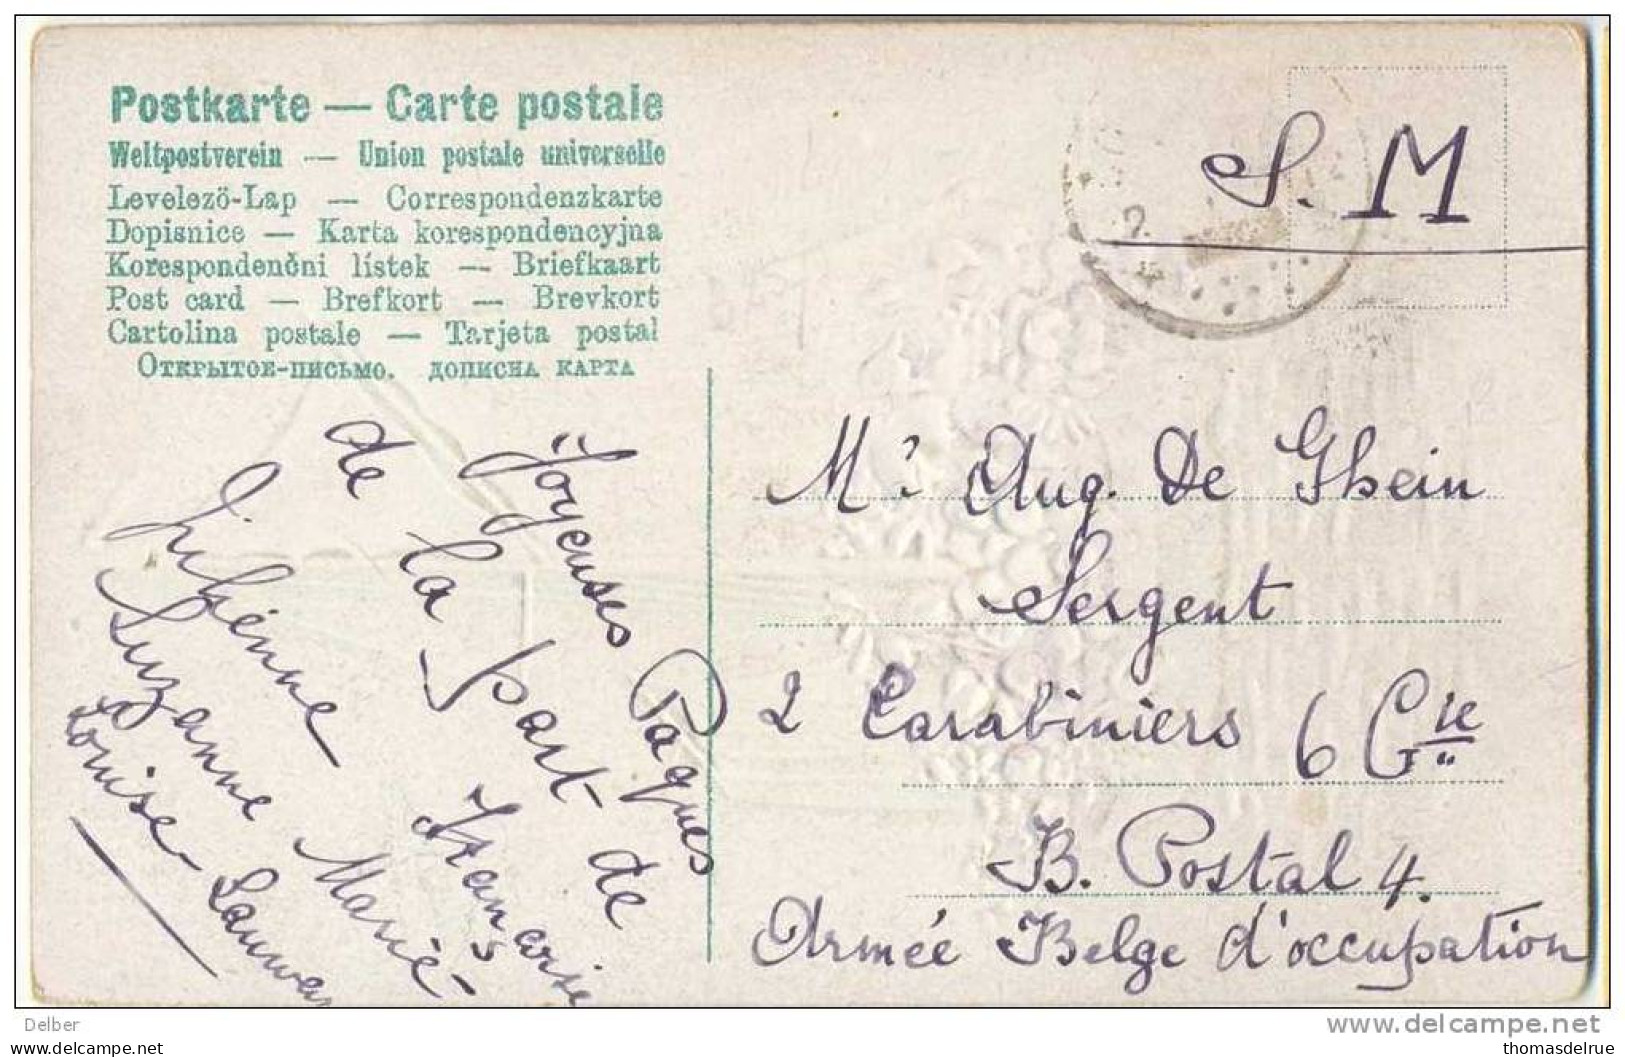 Postkarte — Carte postale
Weltpostverein — Union postale universelle
Levelezö-Lap — Correspondenzkarte
Dopisnice — Karta korespondencyjna
Korespondenčni lístek — Briefkaart
Post card — Brefkort — Brevkort
Cartolina postale — Tarjeta postal
Открытое-письмо. дописна карта
S. M
Mr Aug. De Ghein
Sergent
2 Carabiniers 6 Cie
B. Postal 4.
Armée Belge d'occupation
Joyeuses Paques
de la part de
Françoise
Marie-
Suzanne
Louise
Delber
www.delcampe.net
thomasdelrue